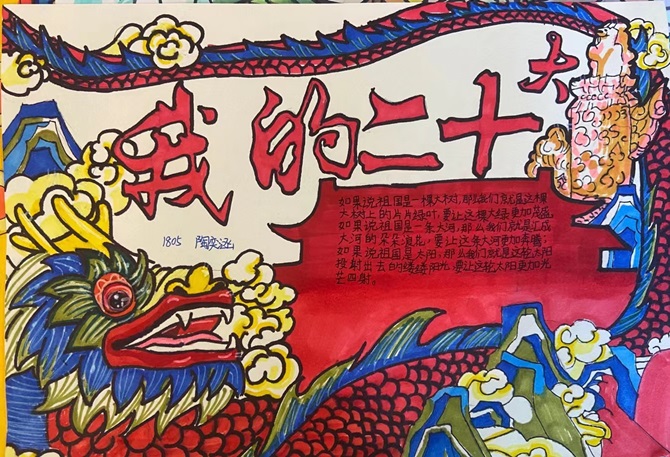 我的二十大
1805 陶奕涵
如果说祖国是一棵大树，那我们就是这棵
大树上的片片绿叶，要让这棵大绿更加茂盛。
如果说祖国是一条大河，那么我们就是汇成
大河的朵朵浪花，要让这条大河更加奔腾；
如果说祖国是太阳，那么我们就是这轮太阳
投射出去的缕缕阳光，要让这轮太阳更加光
芒四射。